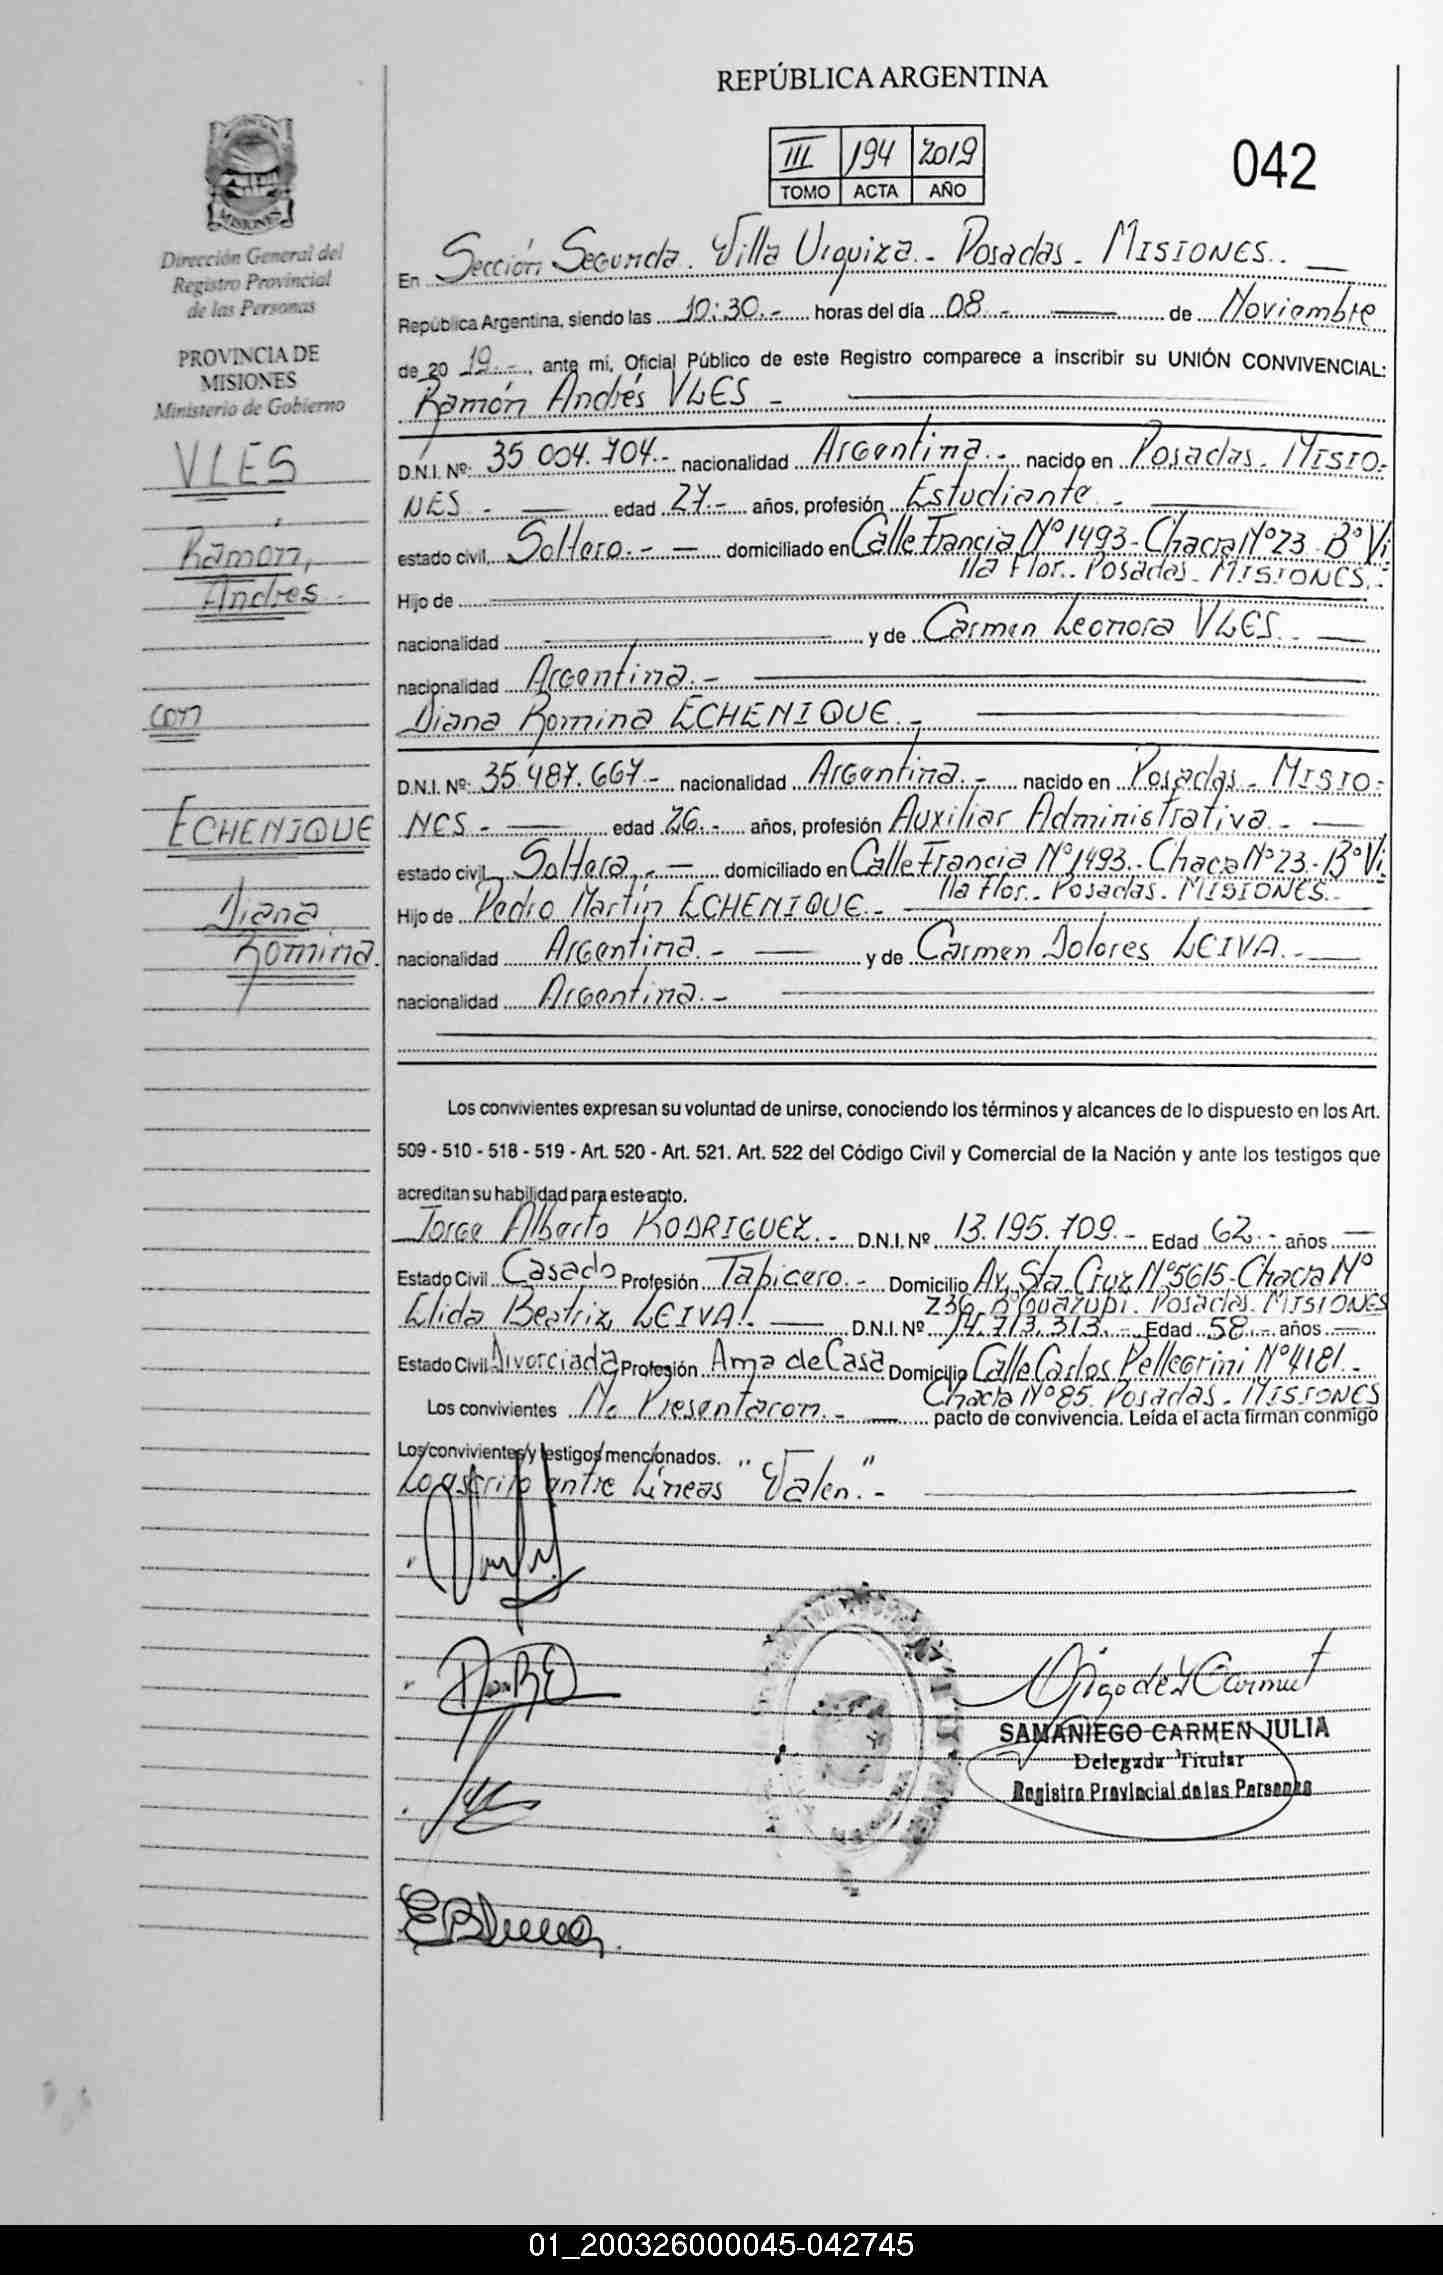 REPÚBLICA ARGENTINA
III 194 2019
TOMO ACTA AÑO
042
Dirección General del
Registro Provincial
de las Personas
PROVINCIA DE
MISIONES
Ministerio de Gobierno
VLES
Ramón,
Andrés.-
con
ECHENIQUE
Diana
Romina.
En Sección Segunda. Villa Urquiza.- Posadas.- MISIONES.-
República Argentina, siendo las 10:30.- horas del día 08.- de Noviembre
de 20 19.-, ante mí, Oficial Público de este Registro comparece a inscribir su UNIÓN CONVIVENCIAL:
Ramón Andrés VLES.-
D.N.I. Nº: 35.004.704.- nacionalidad Argentina.- nacido en Posadas. MISIO-
NES.- edad 27.- años, profesión Estudiante.-
estado civil, Soltero.- domiciliado en Calle Francia Nº 1493-Chacra Nº 23-Bº Vi
lla Flor.. Posadas. MISIONES.-
Hijo de
nacionalidad y de Carmen Leonora VLES.
nacionalidad Argentina.-
Diana Romina ECHENIQUE.-
D.N.I. Nº: 35.487.667.- nacionalidad Argentina.- nacido en Posadas.- MISIO-
NES.- edad 26.- años, profesión Auxiliar Administrativa.-
estado civil, Soltera,.- domiciliado en Calle Francia Nº 1493.-Chacra Nº 23.-Bº Vi
lla Flor.. Posadas. MISIONES.-
Hijo de Pedro Martín ECHENIQUE.-
nacionalidad Argentina.- y de Carmen Dolores LEIVA.-
nacionalidad Argentina.-
Los convivientes expresan su voluntad de unirse, conociendo los términos y alcances de lo dispuesto en los Art.
509 - 510 - 518 - 519 - Art. 520 - Art. 521. Art. 522 del Código Civil y Comercial de la Nación y ante los testigos que
acreditan su habilidad para este acto.
Jorge Alberto RODRIGUEZ.- D.N.I. Nº 13.195.709.- Edad 62.- años
Estado Civil Casado Profesión Tapicero.- Domicilio Av. Sta. Cruz Nº 5615-Chacra Nº
236 Bº Guazupi. Posadas. MISIONES
Elida Beatriz LEIVA. D.N.I. Nº 14.713.313.- Edad 58.- años
Estado Civil Divorciada Profesión Ama de Casa Domicilio Calle Carlos Pellegrini Nº 4181.-
Chacra Nº 85. Posadas. MISIONES
Los convivientes No Presentaron.- pacto de convivencia. Leída el acta firman conmigo
Los convivientes y testigos mencionados.
Lo escrito entre Líneas "Valen".-
SAMANIEGO CARMEN JULIA
Delegada Titular
Registro Provincial de las Personas
01_200326000045-042745